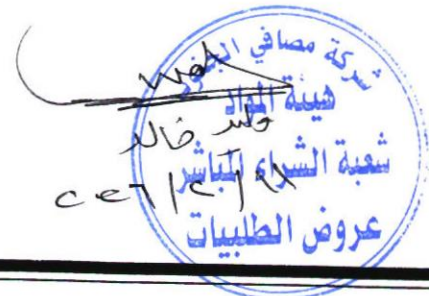 شركة مصافي الجنوب
هيئة المواد
شعبة الشراء المباشر
عروض الطلبيات
خالد